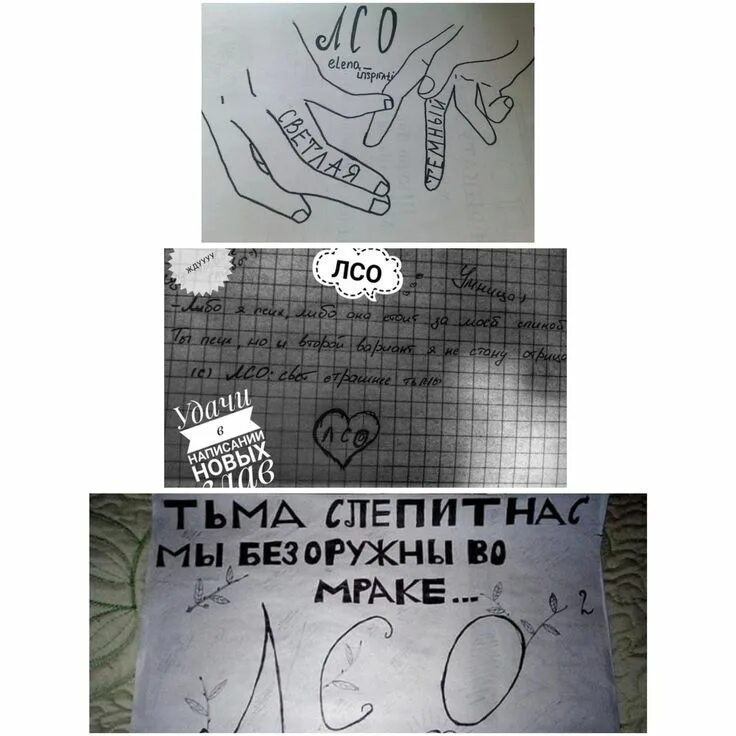 ЛСО
elena_
inspirati
СВЕТЛАЯ
ТЕМНЫЙ
ЖДУУУУ
ЛСО
Умница,
- Либо я псих, либо она стоит за моей спиной
Ты псих, но и второй вариант я не стану отрица
(с) ЛСО: свет страшнее тьмы
ЛСО
Удачи
в
НАПИСАНИИ
НОВЫХ
ГЛАВ
ТЬМА СЛЕПИТ НАС
МЫ БЕЗОРУЖНЫ ВО
МРАКЕ...
2
ЛСО